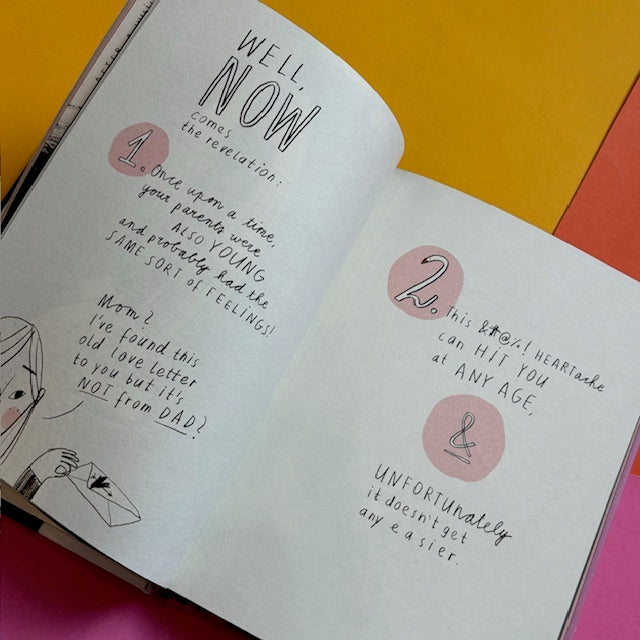 WELL,
NOW
comes
the revelation:
1. Once upon a time,
your parents were
ALSO YOUNG
and probably had the
SAME SORT OF FEELINGS!
Mom?
I've found this
old love letter
to you but it's
NOT from DAD?
2. This &#@%! HEARTache
can HIT YOU
at ANY AGE,
&
UNFORTUnately
it doesn't get
any easier.